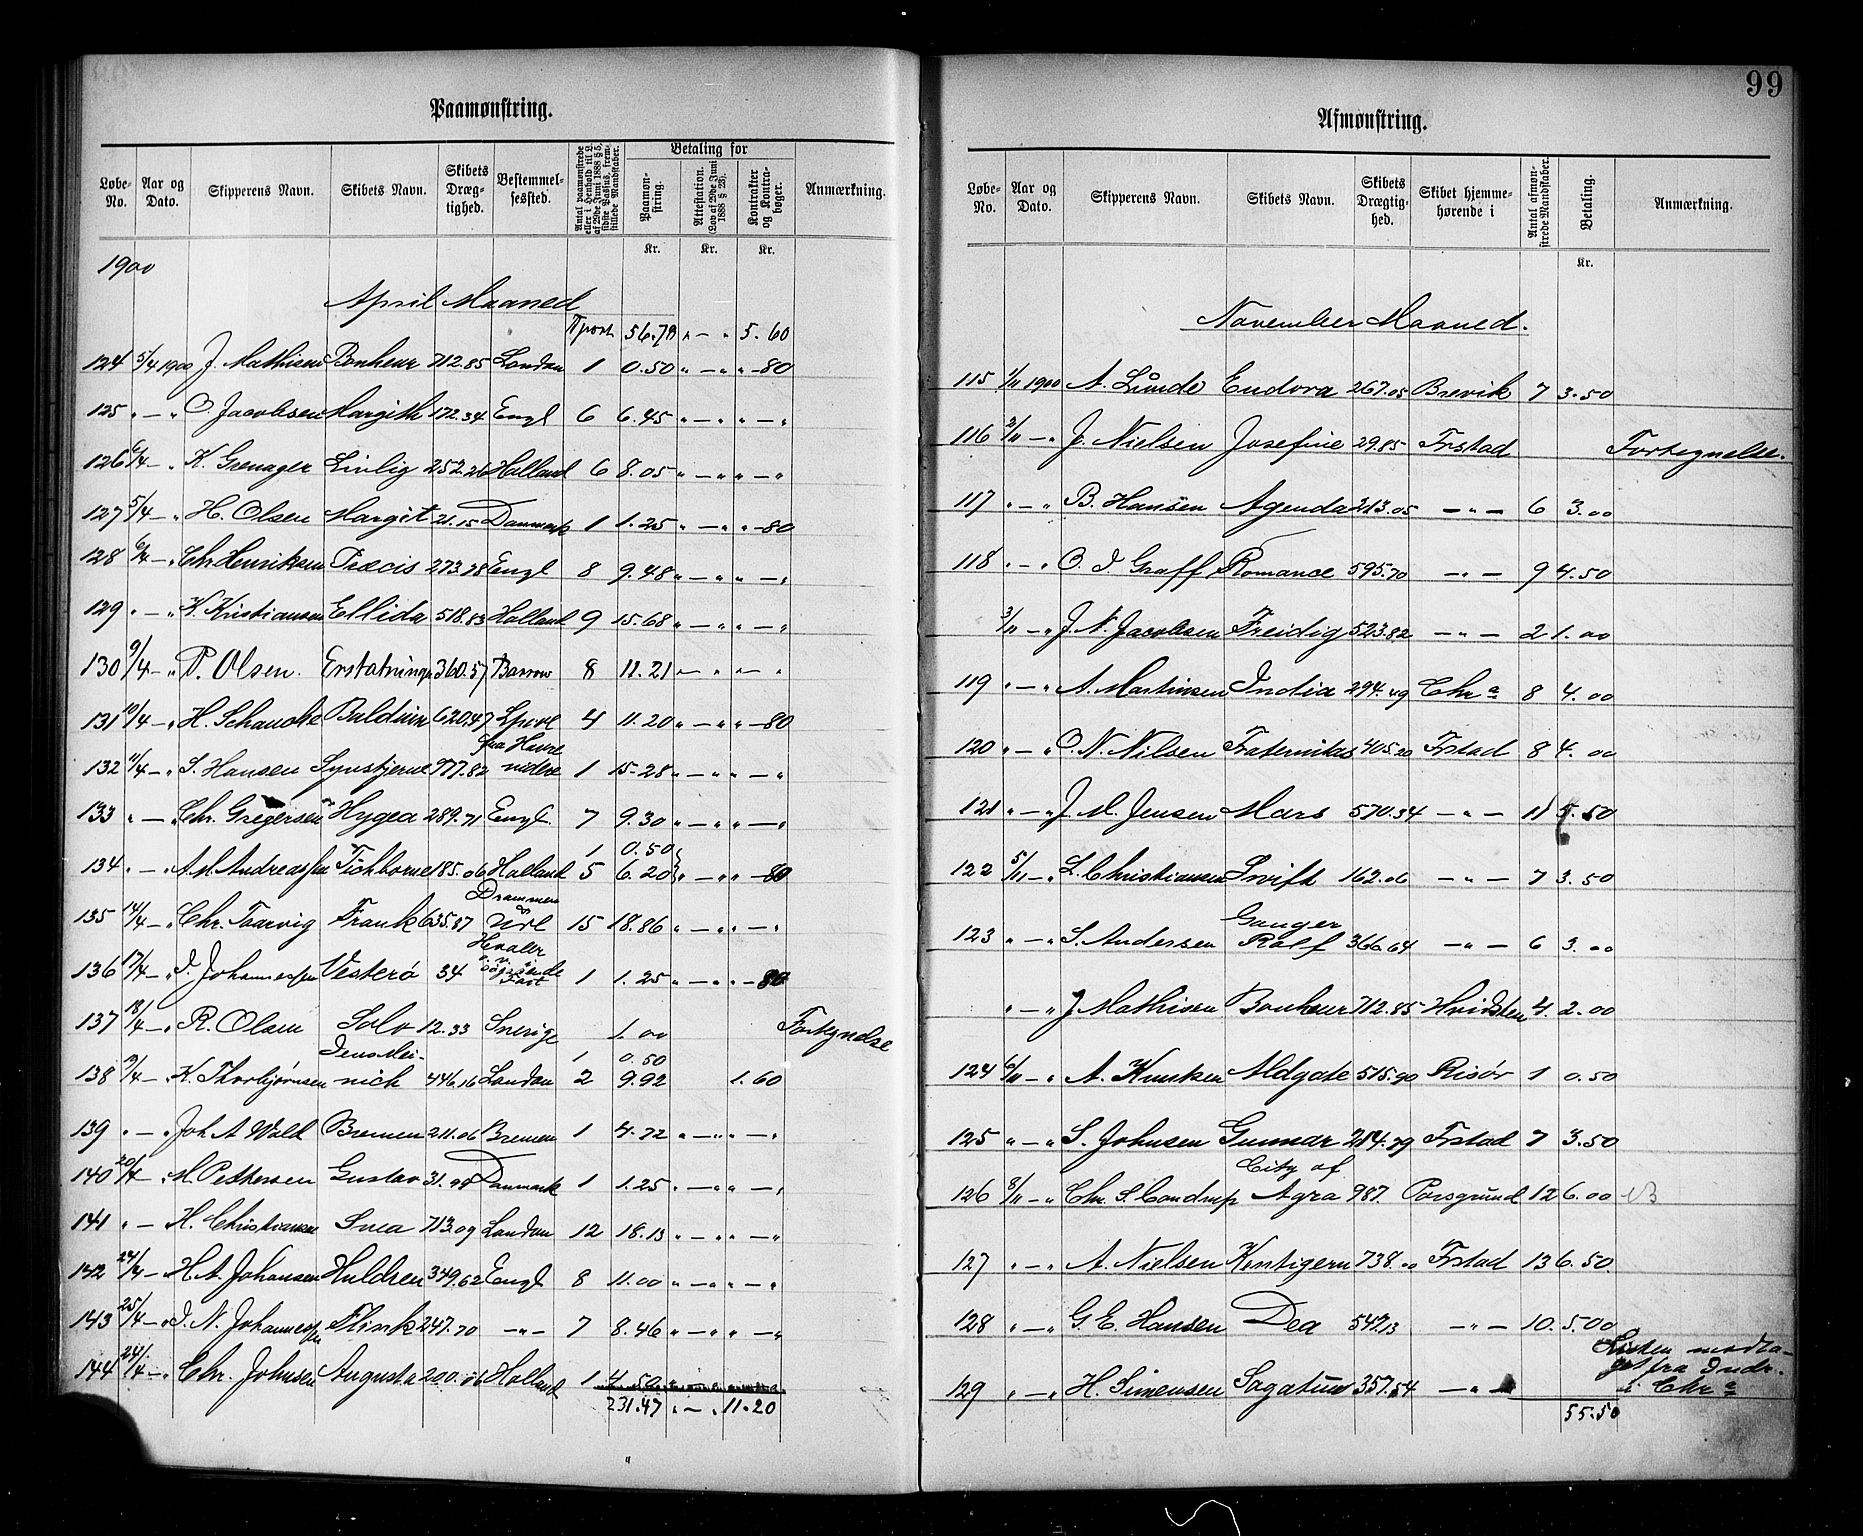 99
Paamønstring.
Løbe-No. Aar og Dato. Skipperens Navn. Skibets Navn. Skibets Dræg-tighed. Bestemmel-sessted. Antal paamønstrede eller i Henhold til L. af 29de Juni 1888 § 5, sidste Passus, frem-stillede Mandskaber. Betaling for Paamøn-string. Attestation. (Lov af 29de Juni 1888 § 28). Kontrakter og Kontra-bøger. Anmærkning.
Kr. Kr. Kr.
1900
April Maaned
Tport 56.79 " — " 5.60
124 5/4 1900 J. Mathisen Bonheur 712.85 London 1 0.50 " — " " — 80
125 " — " O. Jacobsen Margith 172.34 Engl 6 6.45 " — " " — "
126 6/4 — " K. Grenager Livlig 252.26 Holland 6 8.05 " — " " — "
127 5/4 — " H. Olsen Margit 21.15 Danmark 1 1.25 " — " " — 80
128 6/4 — " Chr Henriksen Præcis 273.28 Engl 8 9.48 " — " " — "
129 " — " K. Kristiansen Ellida 518.83 Holland 9 15.68 " — " " — "
130 9/4 — " P. Olsen. Erstatningen 360.57 Barrow 8 11.21 " — " " — "
131 10/4 — " H. Schanche Baldwin 620.47 Lpool 4 11.20 " — " " — 80
fra Havre
132 11/4 — " S. Hansen Synstjerne 777.82 videre 1 15.28 " — " " — "
133 " — " Chr. Gregersen Hygea 289.71 Engl. 7 9.30 " — " " — "
1 0.50
134 " — " A. M. Andreassen Tichborne 185.06 Holland 5 6.20 " — " " — 80
Drammen
135 14/4 — " Chr. Taarvig Frank 635.87 Url 15 18.86 " — " " — "
Hvaler
136 17/4 — " J. Johannessen Vesterø 34 1 1.25 " — " " — 80
137 18/4 — " R. Olsen Solv 12.33 Sverige 1.00 Fortegnelse
1 0.50
138 9/4 — " K. Thorbjørnsen nich 446.16 London 2 9.92 1.60
139 " — " Joh A Wold Bremen 211.06 Bremen 1 4.72 " — " " — "
140 20/4 — " M. Pettersen Gustav 31.99 Danmark 1 1.25 " — " " — "
141 " — H. Christiansen Svea 713.09 London 12 18.13 " — " " — "
142 24/4 — H. A. Johansen Huldren 349.62 Engl 8 11.00 " — " " — "
143 25/4 — " J. N. Johannessen Flink 247.70 — " — 7 8.46 " — " " — "
144 24/4 — " Chr. Johnsen Augusta 200.06 Holland 1 4.50
231.47 " — " 11.20
Afmønstring.
Løbe-No. Aar og Dato. Skipperens Navn. Skibets Navn. Skibets Drægtig-hed. Skibet hjemme-hørende i Antal afmøn-strede Mandskaber. Betaling. Anmærkning.
Kr.
November Maaned.
115 1/11 1900 A. Lunde Eudora 267.05 Brevik 7 3.50
116 2/11 — " J. Nielsen Josefine 29.85 Frstad Fortegnelse.
117 " — " B. Hansen Agenda 213.05 — " — 6 3.00
118 " — " O. J. Graff Romance 595.70 — " — 9 4.50
3/11 — " J. N. Jacobsen Freidig 523.82 — " — 2 1.00
119 " — " A. Martinsen India 294.49 Chra 8 4.00
120 " — " O. N. Nilsen Fraternitas 405.20 Frstad 8 4.00
121 " — " J. M. Jensen Mars 570.34 — " — 11 5.50
122 5/11 — " L. Christiansen Swift 162.06 — " — 7 3.50
Ganger
123 " — " S. Andersen Rolf 366.64 — " — 6 3.00
" — " J Mathisen Bonheur 712.85 Hvidsten 4. 2.00
124 6/11 — " A. Knutsen Aldgate 515.90 Risør 1 0.50
125 " — " S. Johnsen Gunnar 214.79 Frstad 7 3.50
City of
126 8/11 — " Chr. S. Condrup Agra 987. Porsgrund 12 6.00 NB
127 " — " A. Nielsen Kentigern 738.00 Frstad 13 6.50
128 " — " G. E. Hansen Dea 547.13 — " — 10. 5.00
Listen modta-
get fra Indr.
129 " — " H. Simensen Sagatun 357.54 — " — i Chra
55.50